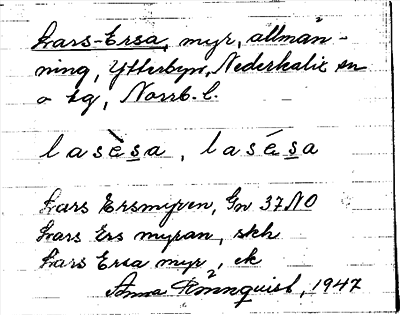 Lars-Ersa, myr, allmän-
ning, Ytterbyn, Nederkalix sn
o tg, Norrb. l.
lasèsa, lasésa
Lars Ersmyren, Gn 37 NO
Lars Ers myran, skh
Lars Ersa myr, ek
Anna Rönnquist, 1947